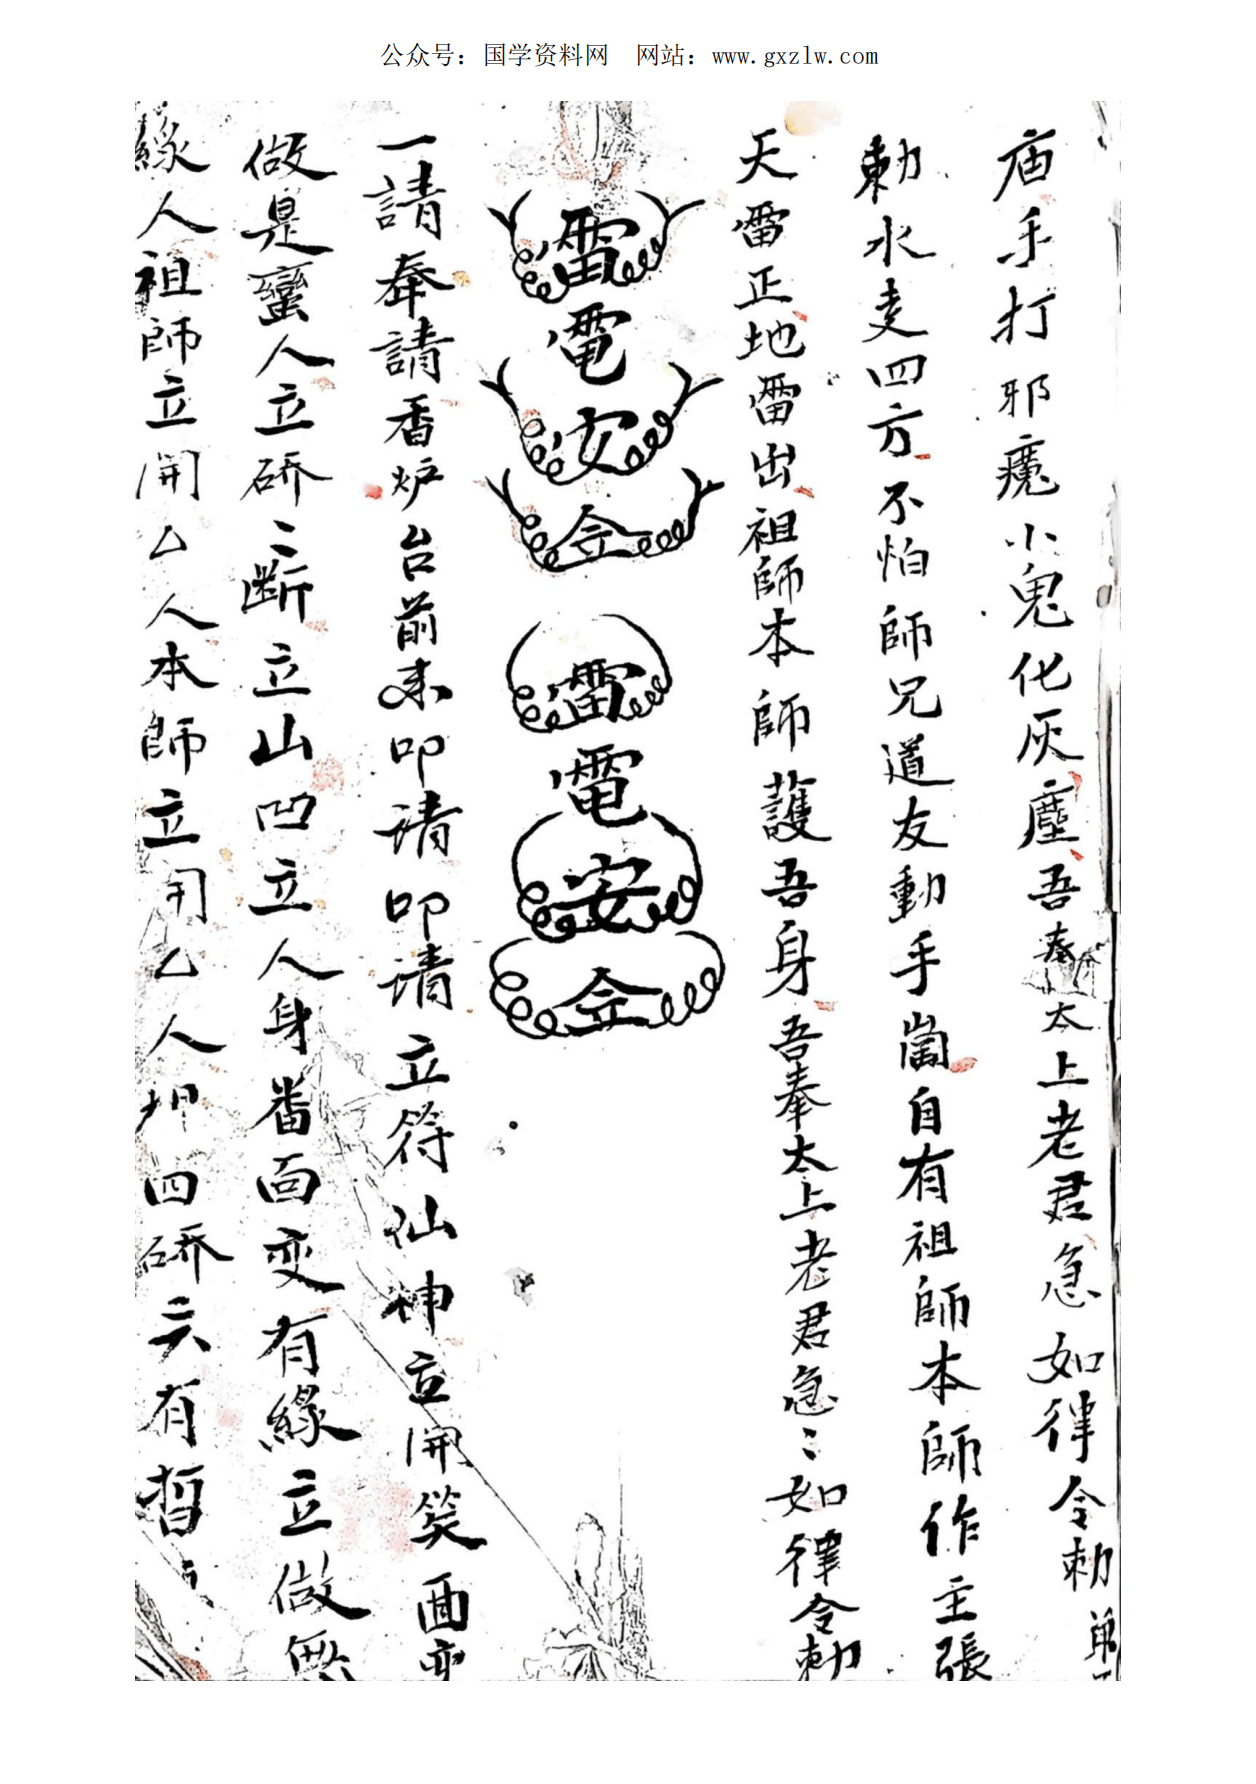 公众号：国学资料网　网站：www.gxzlw.com
庙手打邪魔小鬼化灰塵吾奉太上老君急如律令勅
勅水走四方不怕師兄道友動手啚自有祖師本師作主張
天雷正地雷出祖師本師護吾身吾奉太上老君急〻如律令勅
雷電安令
雷電安令
一請奉請香炉台前来叩请叩请立符仙神立開笑面变
做是蠻人立硚〻断立山凹立人身番面变有緣立做無
緣人祖師立開厶人本師立開厶人押四硚六有晢〻